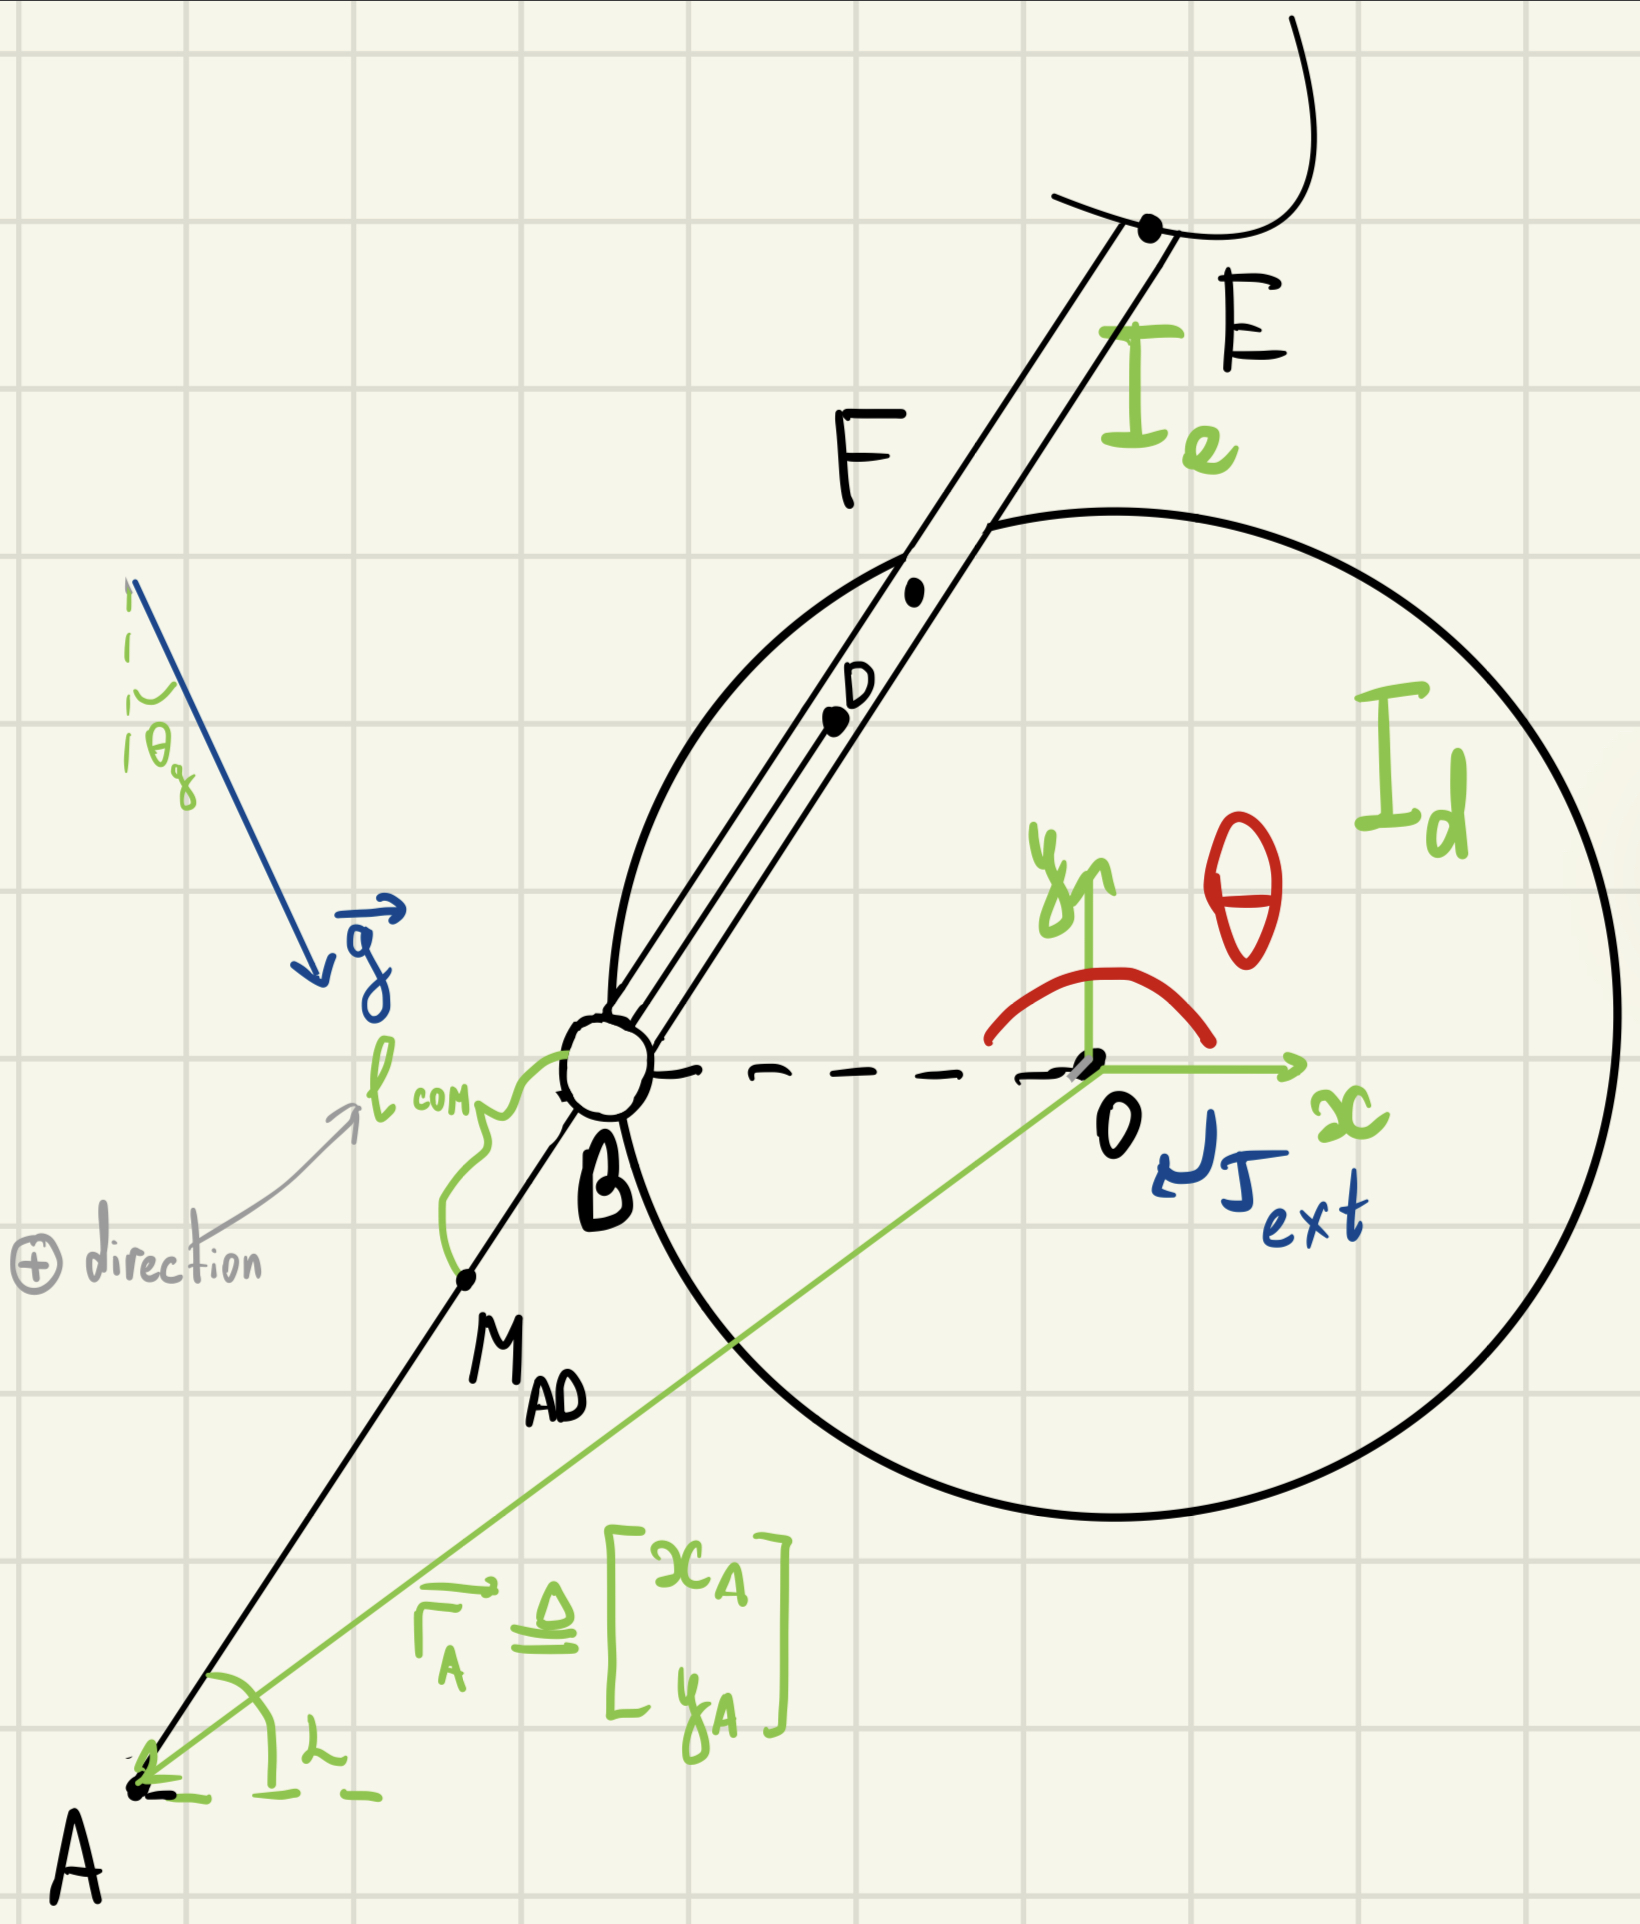 E
I_e
F
D
I_d
θ_g
y
θ
g⃗
ℓ_COM
x
O
τ_ext
B
⊕ direction
M_AD
r⃗_A ≜ [x_A
y_A]
A